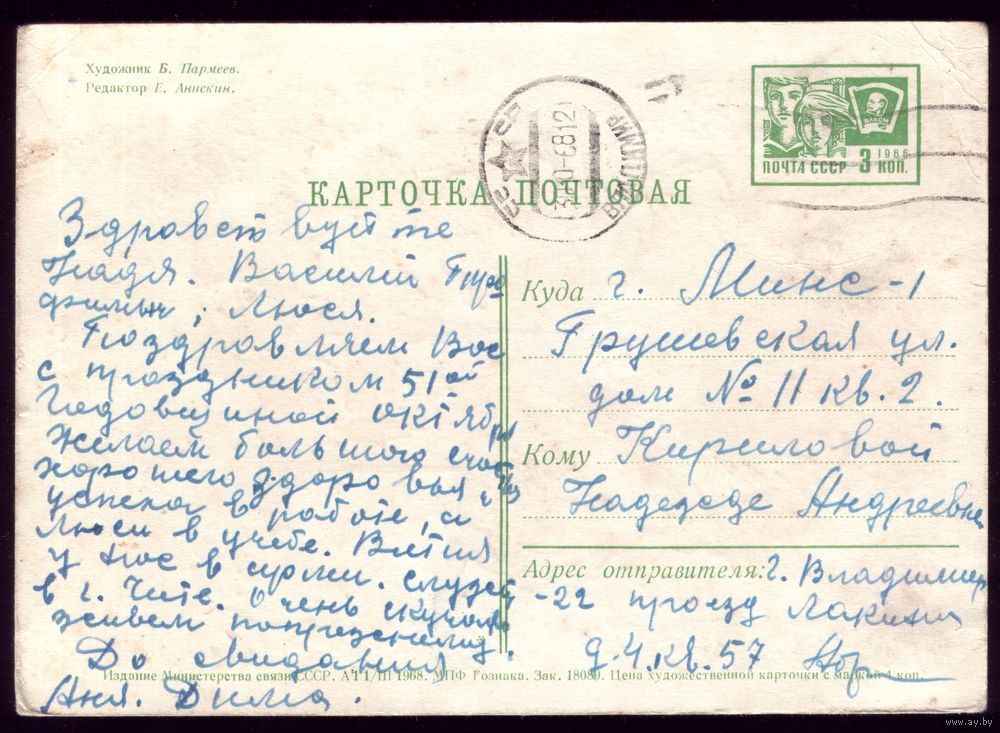 Художник Б. Пармеев.
Редактор Е. Анискин.
ВЛКСМ
1966
ПОЧТА СССР 3 КОП.
ВЛАДИМИР
КАРТОЧКА ПОЧТОВАЯ
Здравствуйте
Надя. Василий Тро
фимыч, Люся.
Поздравляем Вас
с праздником 51ой
Годовщиной октября
желаем большого счас
хорошего здоровья
успеха в работе, а
Люси в учебе. Витя
у нас в армии. служит
в г. Чите. Очень скучаю
живем
До свидания
Аня. Дима.
Куда г. Минс-1
Грушевская ул.
дом № 11 кв. 2.
Кому Кириловой
Надежде Андреевне
Адрес отправителя: г. Владимир
-22 проезд Лакина
д. 4. кв. 57
Издание Министерства связи СССР. 1968. МПФ Гознака. Зак. 18089. Цена художественной карточки с маркой 4 коп.
www.ay.by